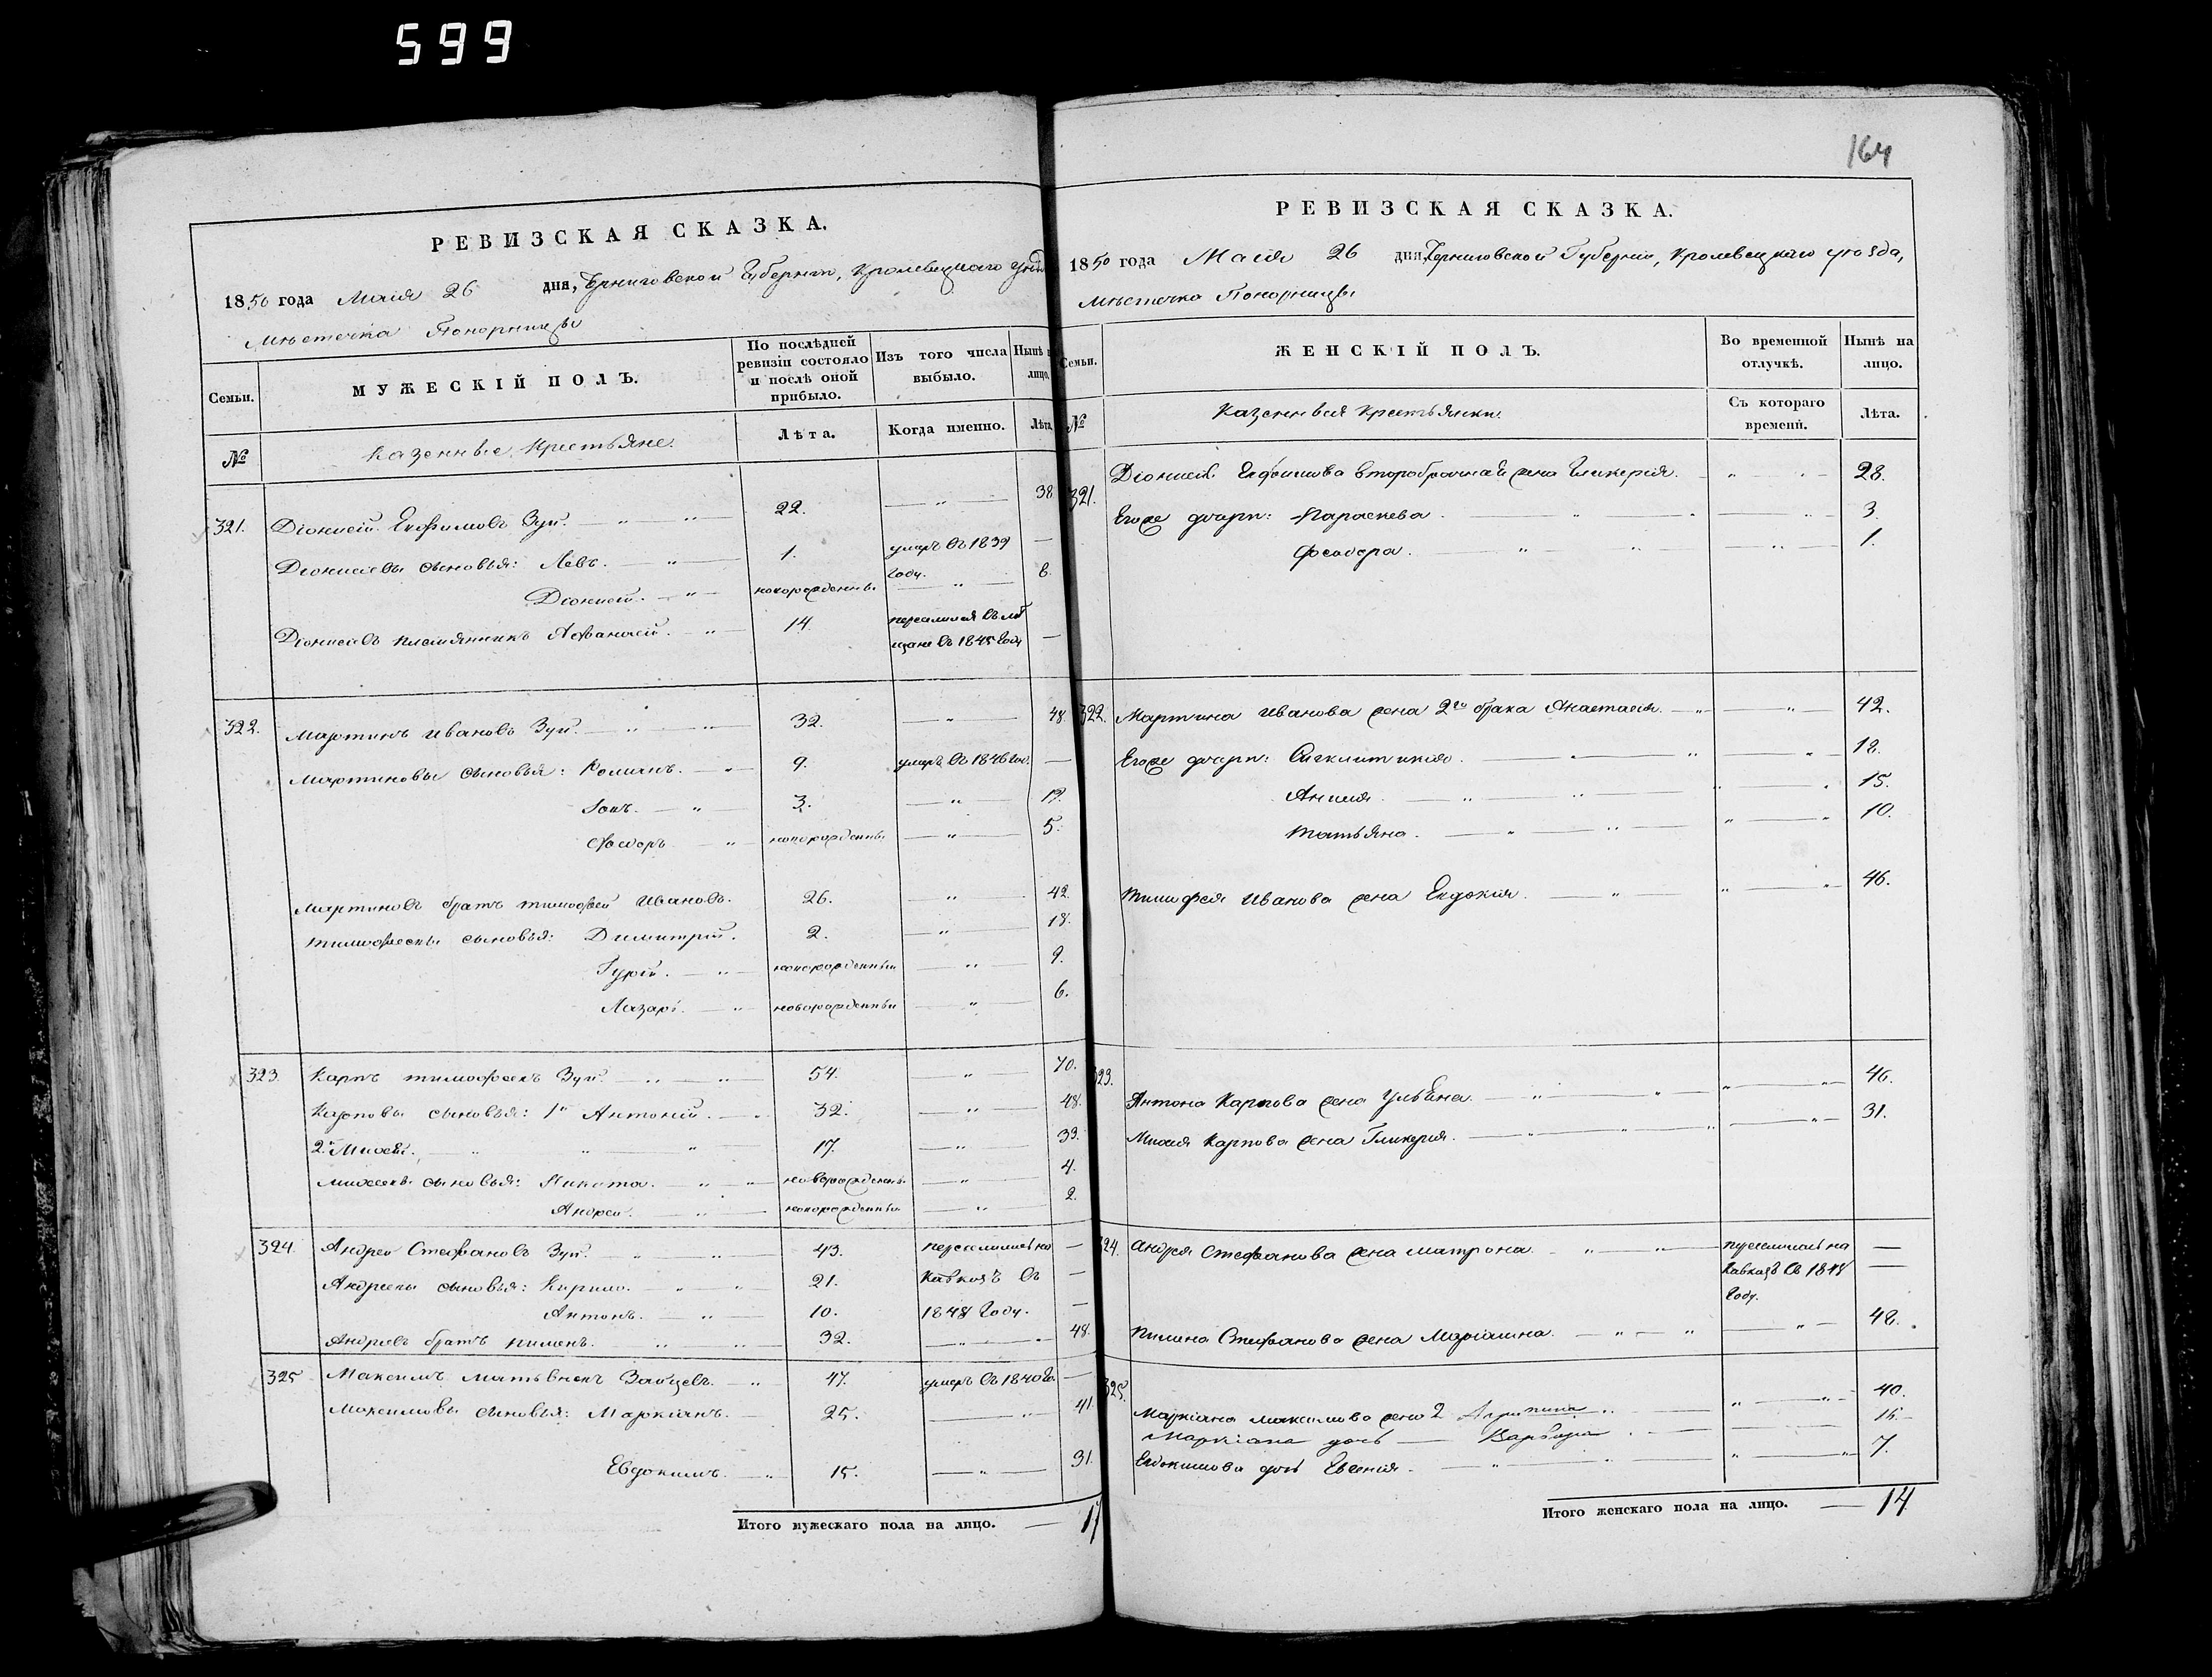 599
164
РЕВИЗСКАЯ СКАЗКА.
1850 года Маія 26 дня, Черниговской Губерніи, Кролевецкаго
Мѣстечка Понорницы
Семьи. МУЖЕСКІЙ ПОЛЪ. По послѣдней ревизіи состояло и послѣ оной прибыло. Изъ того числа выбыло. Нынѣ на лицо.
№ Казенные Крестьяне. Лѣта. Когда именно. Лѣта
321. Діонисій Ефимовъ Зуй. 22. — " — 38
Діонисіевы сыновья: Левъ. 1. умеръ въ 1839 году. —
Діонисій. новорожденны — " — 8.
Діонисіевъ племянникъ Афанасій. 14. переселился въ мѣщане въ 1845 году —
322. Мартинъ Ивановъ Зуй. 32. — " — 48.
Мартиновы сыновья: Романъ. 9. умеръ въ 1846 год. —
Іовъ. 3. — " — 19.
Ѳедоръ новорожденны — " — 5.
Мартиновъ братъ Тимофей Ивановъ. 26. " 42.
Тимофеевы сыновья: Димитрій. 2. — " — 18.
Гурій. новорожденный — " — 9.
Лазарь. новорожденный — " — 6.
323. Карпъ Тимофеевъ Зуй. 54. " 70.
Карповы сыновья: 1й Антоній. 32. — " — 48.
2й Мисей. 17. — " — 33.
Мисеевы сыновья: Никита. новорожденны — " — 4.
Андрей. новорожденны — " — 2.
324. Андрей Стефановъ Зуй. 43. переселились на —
Андреевы сыновья: Кирило. 21. Кавказъ въ —
Антонъ. 10. 1848 году. —
Андреевъ братъ Пименъ. 32. — " — 48.
325 Максимъ Матвѣевъ Зайцевъ. 47. умеръ въ 1840 го. —
Максимовы сыновья: Маркіанъ. 25. — " — 41.
Евдокимъ. 15. — " — 31.
Итого мужескаго пола на лицо. — 17
РЕВИЗСКАЯ СКАЗКА.
1850 года Маія 26 дня, Черниговской Губерніи, Кролевецкаго уѣзда,
Мѣстечка Понорницы
Семьи. ЖЕНСКІЙ ПОЛЪ. Во временной отлучкѣ. Нынѣ на лицо.
№ Казенныя Крестьянки. Съ котораго времени. Лѣта.
321. Діонисія Ефимова второбрачная жена Гликерія. 28.
Егоже дочери: Параскева. 3.
Феодора. 1.
322. Мартина Иванова жена 2го брака Анастасія. 42.
Егоже дочери: Синклитикія. 18.
Анисія. 15.
Татьяна. 10.
Тимофея Иванова жена Евдокія. 46.
323.
Антона Карпова жена Ульяна. 46.
Мисея Карпова жена Гликерія. 31.
324. Андрея Стефанова жена Матрона. переселилась на Кавказъ въ 1848 году. —
Пимена Стефанова жена Маріамна. 48.
325.
Маркіана Максимова жена 2 Агрипина 40.
Маркіана дочь — Варвара 15.
Евдокимова дочь Евгенія. 7.
Итого женскаго пола на лицо. — 14